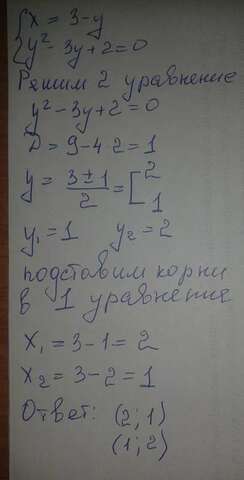 {x = 3-y
y² - 3y + 2 = 0
Решим 2 уравнение
y² - 3y + 2 = 0
D = 9 - 4·2 = 1
y = (3±1)/2 = [2
1
y₁ = 1 y₂ = 2
подставим корни
в 1 уравнение
x₁ = 3 - 1 = 2
x₂ = 3 - 2 = 1
Ответ: (2; 1)
(1; 2)